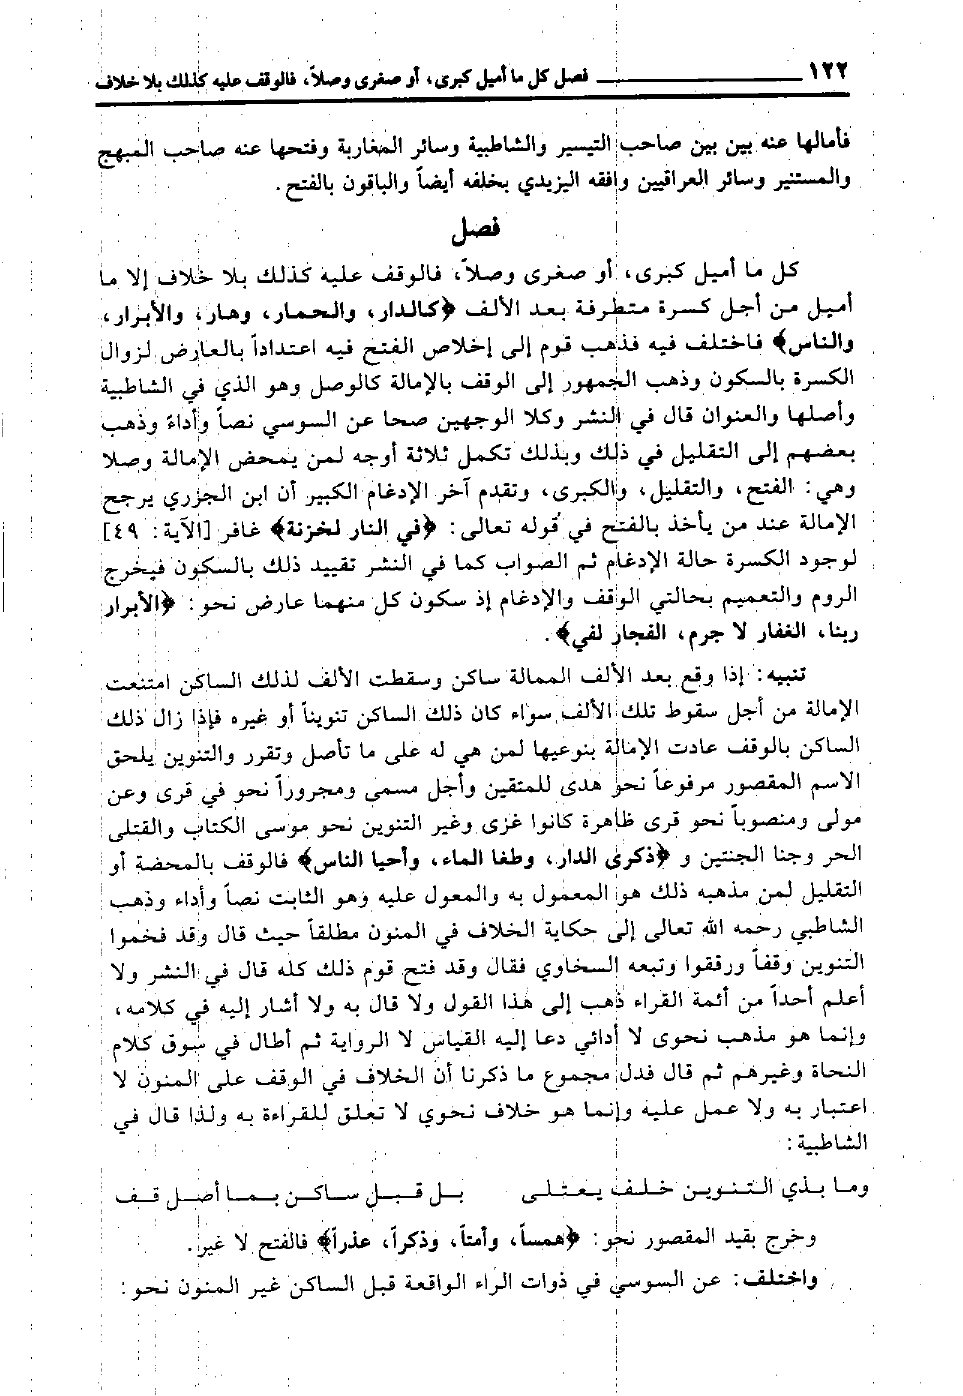 ١٢٢ فصل كل ما أميل كبرى، أو صغرى وصلاً، فالوقف عليه كذلك بلا خلاف
فأمالها عنه بين بين صاحب التيسير والشاطبية وسائر المغاربة وفتحها عنه صاحب المبهج
والمستنير وسائر العراقيين وافقه اليزيدي بخلفه أيضاً والباقون بالفتح.
فصل
كل ما أميل كبرى، أو صغرى وصلاً، فالوقف عليه كذلك بلا خلاف إلا ما
أميل من أجل كسرة متطرفة بعد الألف ﴿كالدار، والحمار، وهار، والأبرار،
والناس﴾ فاختلف فيه فذهب قوم إلى إخلاص الفتح فيه اعتداداً بالعارض لزوال
الكسرة بالسكون وذهب الجمهور إلى الوقف بالإمالة كالوصل وهو الذي في الشاطبية
وأصلها والعنوان قال في النشر وكلا الوجهين صحا عن السوسي نصاً وأداءً وذهب
بعضهم إلى التقليل في ذلك وبذلك تكمل ثلاثة أوجه لمن يمحض الإمالة وصلا
وهي: الفتح، والتقليل، والكبرى، وتقدم آخر الإدغام الكبير أن ابن الجزري يرجح
الإمالة عند من يأخذ بالفتح في قوله تعالى: ﴿في النار لخزنة﴾ غافر [الآية: ٤٩]
لوجود الكسرة حالة الإدغام ثم الصواب كما في النشر تقييد ذلك بالسكون فيخرج
الروم والتعميم بحالتي الوقف والإدغام إذ سكون كل منهما عارض نحو: ﴿الأبرار
ربنا، الغفار لا جرم، الفجار لفي﴾.
تنبيه: إذا وقع بعد الألف الممالة ساكن وسقطت الألف لذلك الساكن امتنعت
الإمالة من أجل سقوط تلك الألف سواء كان ذلك الساكن تنويناً أو غيره فإذا زال ذلك
الساكن بالوقف عادت الإمالة بنوعيها لمن هي له على ما تأصل وتقرر والتنوين يلحق
الاسم المقصور مرفوعاً نحو هدى للمتقين وأجل مسمى ومجروراً نحو في قرى وعن
مولى ومنصوباً نحو قرى ظاهرة كانوا غزى وغير التنوين نحو موسى الكتاب والقتلى
الحر وجنا الجنتين و ﴿ذكرى الدار، وطغا الماء، وأحيا الناس﴾ فالوقف بالمحضة أو
التقليل لمن مذهبه ذلك هو المعمول به والمعول عليه وهو الثابت نصاً وأداء وذهب
الشاطبي رحمه الله تعالى إلى حكاية الخلاف في المنون مطلقاً حيث قال وقد فخموا
التنوين وقفاً ورققوا وتبعه السخاوي فقال وقد فتح قوم ذلك كله قال في النشر ولا
أعلم أحداً من أئمة القراء ذهب إلى هذا القول ولا قال به ولا أشار إليه في كلامه،
وإنما هو مذهب نحوى لا أدائي دعا إليه القياس لا الرواية ثم أطال في سوق كلام
النحاة وغيرهم ثم قال فدل مجموع ما ذكرنا أن الخلاف في الوقف على المنون لا
اعتبار به ولا عمل عليه وإنما هو خلاف نحوي لا تعلق للقراءة به ولذا قال في
الشاطبية:
وما بذي التنوين خلف يعتلى بل قبل ساكن بما أصل قف
وخرج بقيد المقصور نحو: ﴿همساً، وأمتاً، وذكراً، عذراً﴾ فالفتح لا غير.
واختلف: عن السوسي في ذوات الراء الواقعة قبل الساكن غير المنون نحو: